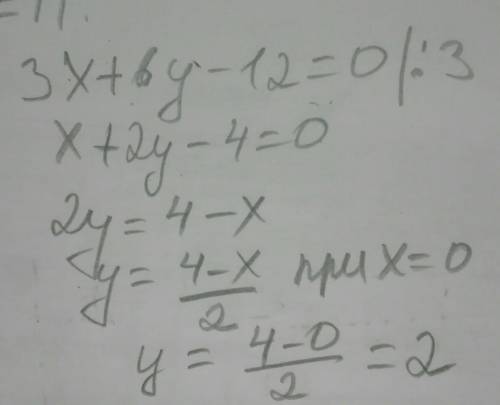 = 11.
3x+6y-12=0 |:3
x+2y-4=0
2y=4-x
y=\frac{4-x}{2} при x=0
y=\frac{4-0}{2}=2